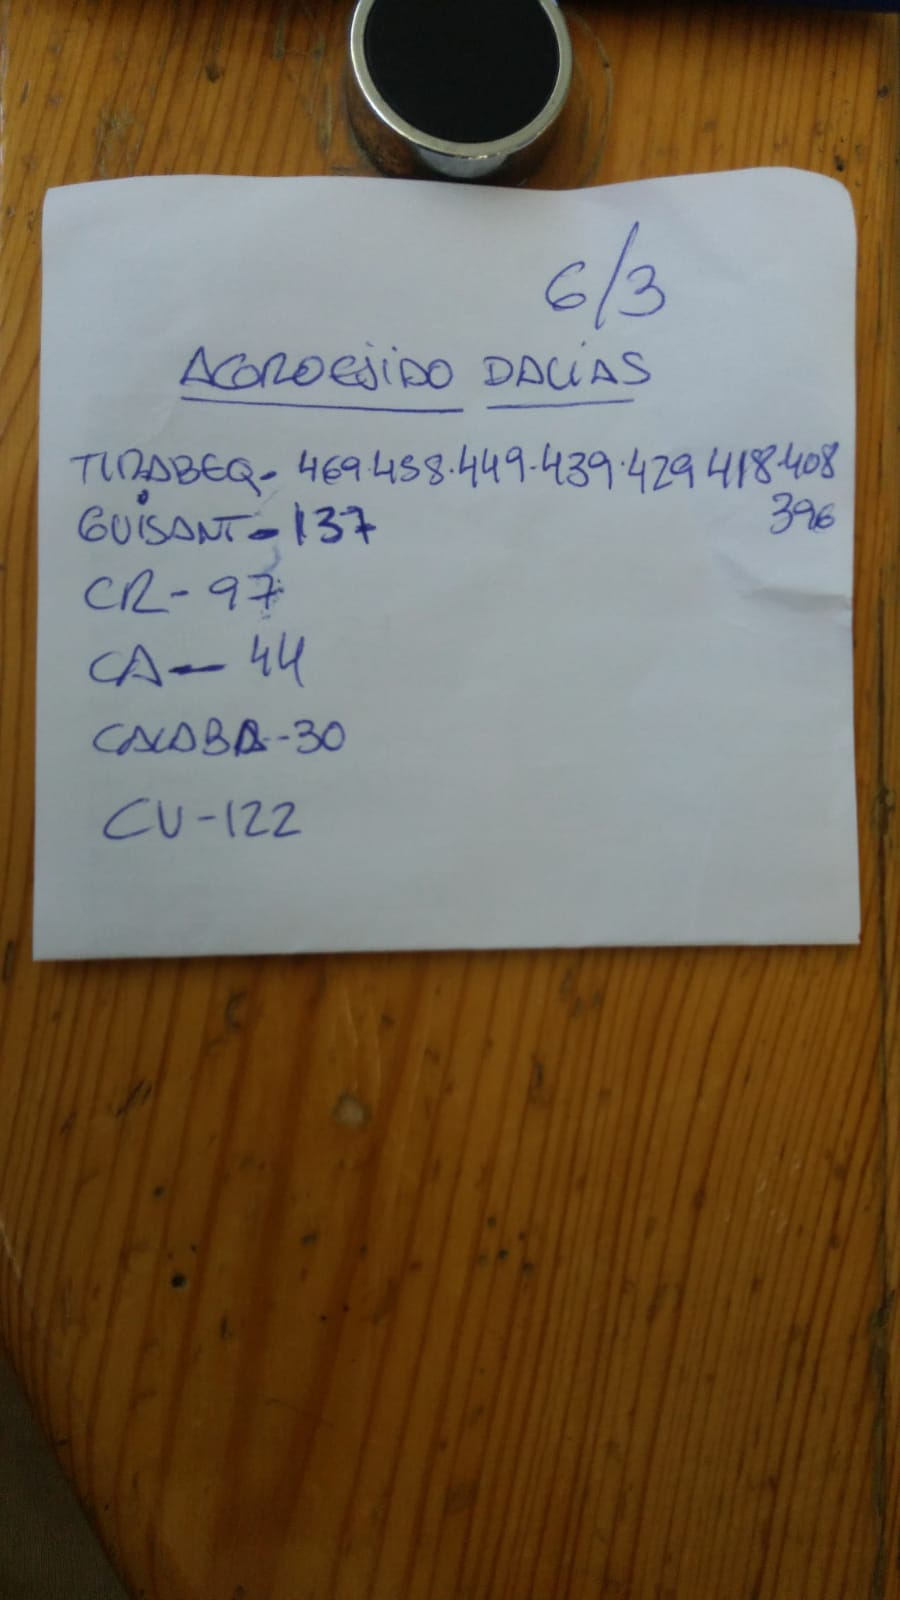 6/3
AGROEJIDO DALÍAS
TIRABEQ- 469.458.449.439.429 418.408
396
GUISANT- 137
CR- 97
CA- 44
CALABA-30
CU-122